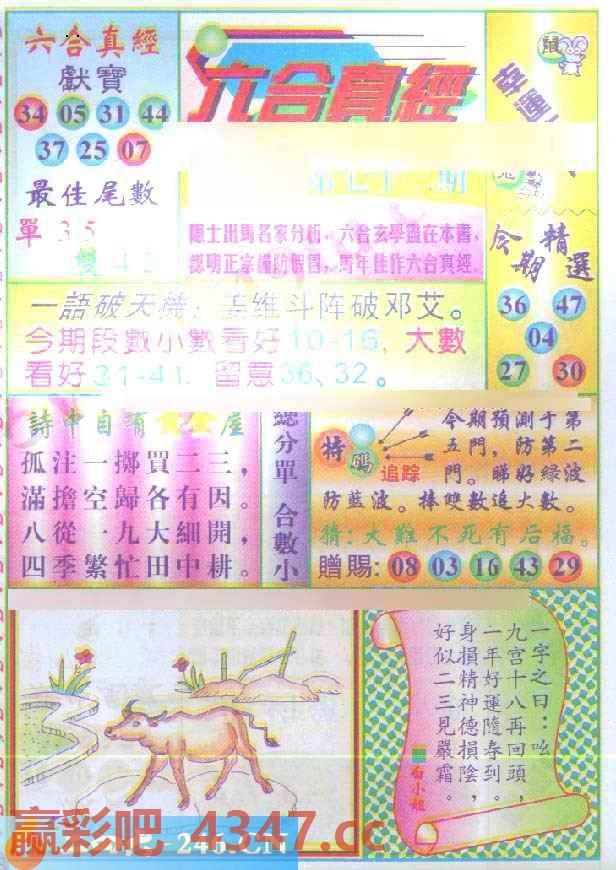 六合真經
獻寶
34 05 31 44
37 25 07
最佳尾數
單 3 5
六合真經
鼠
隱士出馬名家分析，六合玄學盡在本書，
認明正宗謹防假冒，馬年佳作六合真經
今期精選
36 47
04
27 30
一語破天機：姜维斗阵破邓艾。
今期段數小數看好10-16，大數
看好31-41，留意36、32。
孤注一擲買二三，
滿擔空歸各有因。
八從一九大細開，
四季繁忙田中耕。
總分單 合數小
特碼
追踪
今期預測于第
五門，防第二
門。睇好綠波
防藍波。捧雙數追大數。
猜：大難不死有后福。
贈賜：08 03 16 43 29
一字之曰：吆
九宫十八再回頭，
一年好運隨春到。
身損精神德損陰，
好似二三見嚴霜。
白小姐
赢彩吧 4347.cc
246.CN